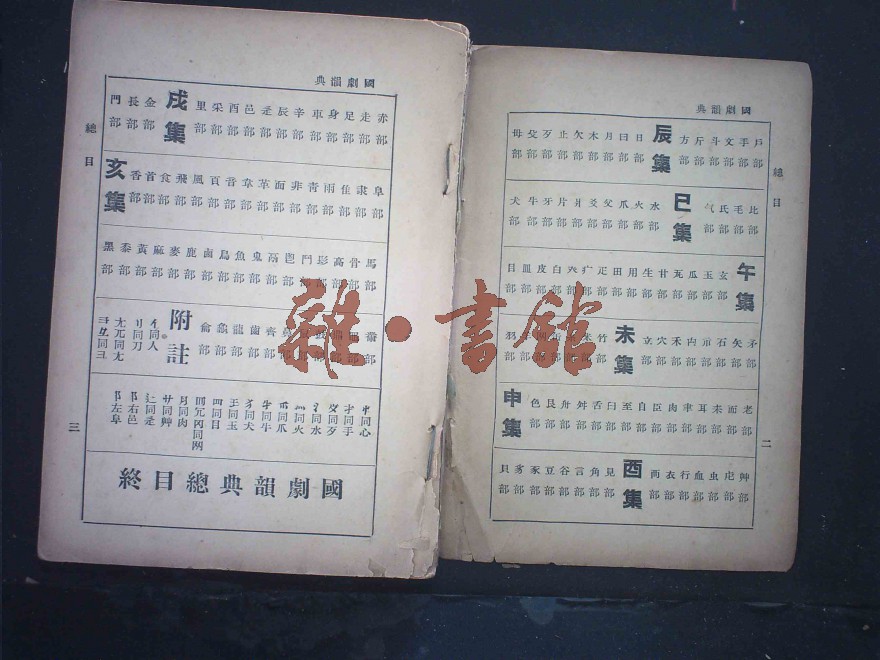 國劇韻典
總目
戶部 手部 文部 斗部 斤部 方部 辰集 日部 曰部 月部 木部 欠部 止部 歹部 殳部 母部
比部 毛部 氏部 气部 巳集 水部 火部 爪部 父部 爻部 爿部 片部 牙部 牛部 犬部
午集 玄部 玉部 瓜部 瓦部 甘部 生部 用部 田部 疋部 疒部 癶部 白部 皮部 皿部 目部
矛部 矢部 石部 示部 禸部 禾部 穴部 立部 未集 竹部
老部 而部 耒部 耳部 聿部 肉部 臣部 自部 至部 臼部 舌部 舛部 舟部 艮部 色部 申集
艸部 虍部 虫部 血部 行部 衣部 襾部 酉集 見部 角部 言部 谷部 豆部 豕部 豸部 貝部
二
國劇韻典
總目
赤部 走部 足部 身部 車部 辛部 辰部 辵部 邑部 酉部 釆部 里部 戌集 金部 長部 門部
阜部 隶部 隹部 雨部 靑部 非部 面部 革部 韋部 音部 頁部 風部 飛部 食部 首部 香部 亥集
馬部 骨部 高部 髟部 鬥部 鬯部 鬲部 鬼部 魚部 鳥部 鹵部 鹿部 麥部 麻部 黃部 黍部 黑部
齊部 齒部 龍部 龜部 龠部 附註 亻同人 刂同刀 尢兀同尢 彐彑同彐
忄同心 扌同手 歺同歹 氵同水 灬同火 爫同爪 牜同牛 犭同犬 王同玉 罒同目 罓冗冈同网 月同肉 艹同艸 辶同辵 阝右邑 阝左阜
國劇韻典總目終
三
雜·書館